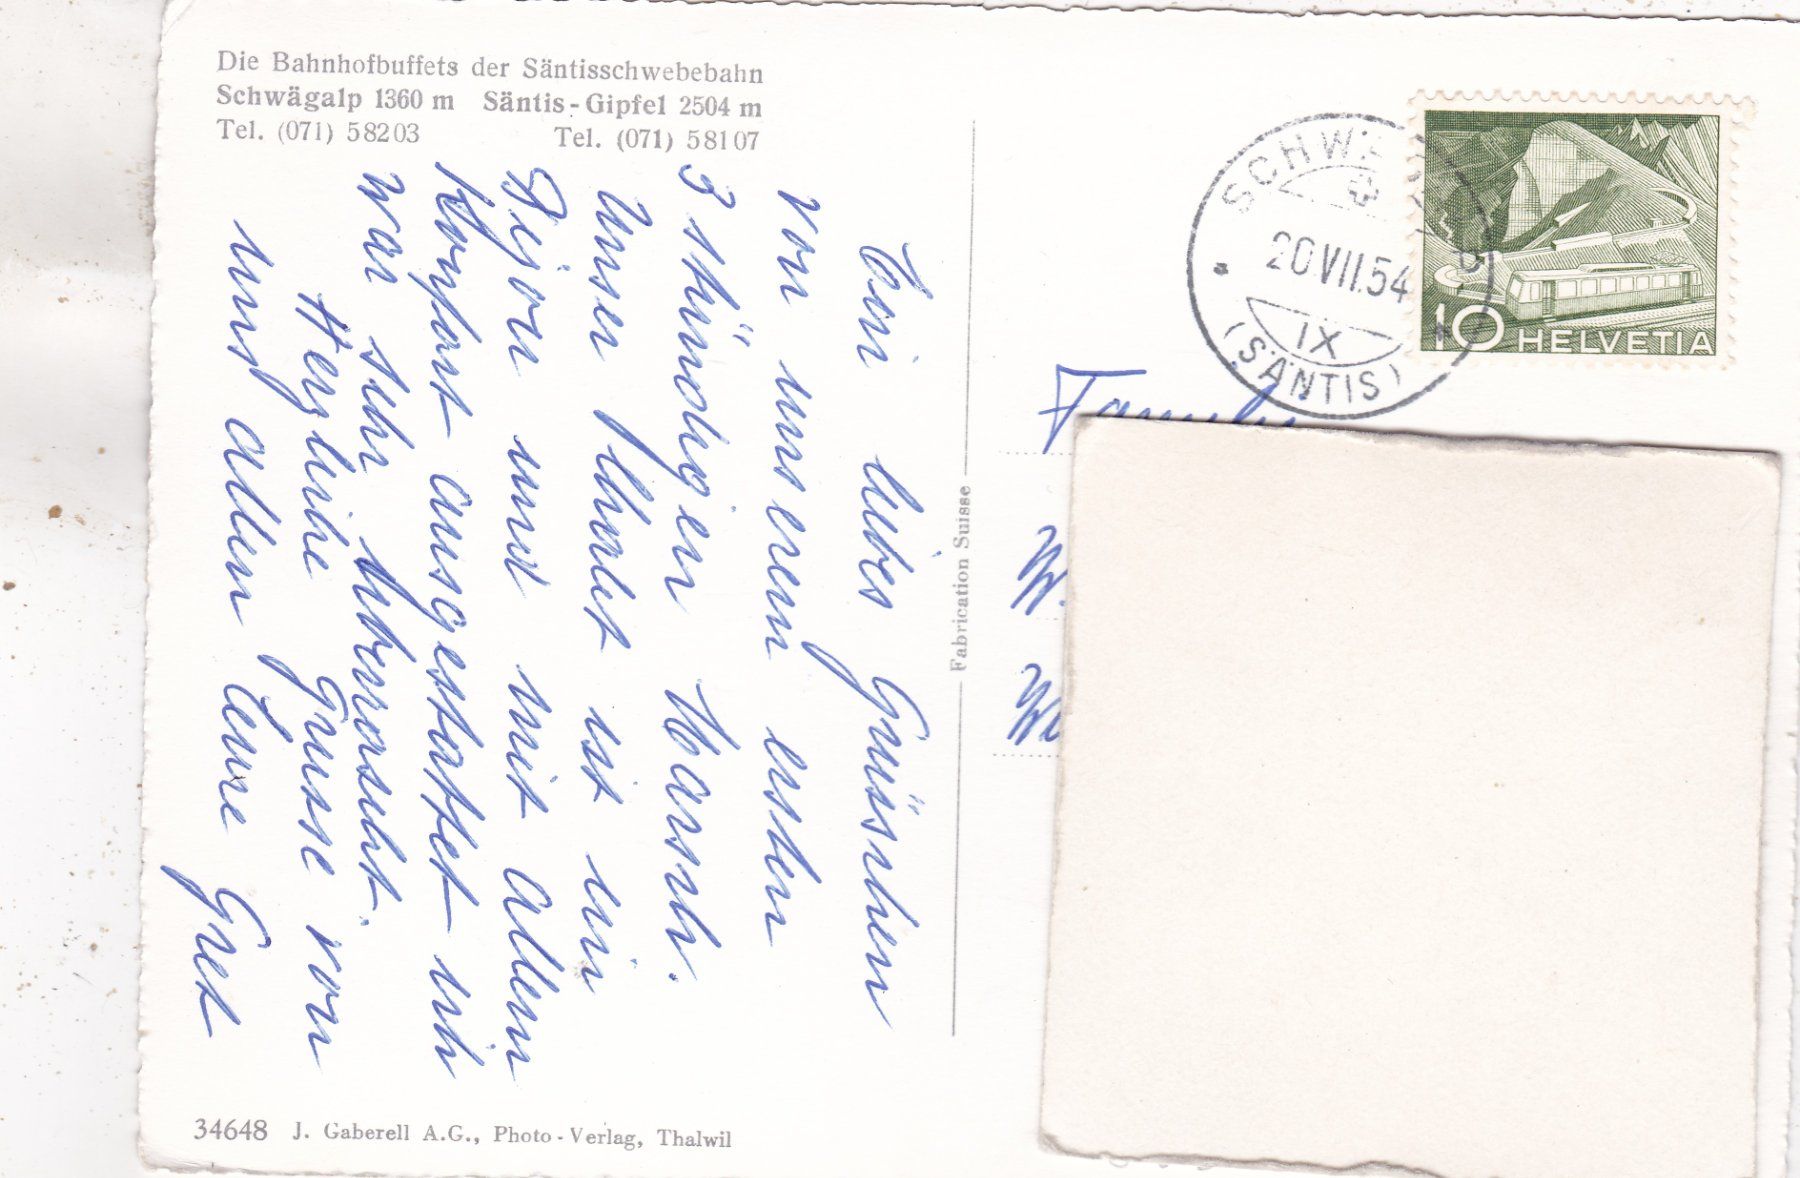 Die Bahnhofbuffets der Säntisschwebebahn
Schwägalp 1360 m Säntis-Gipfel 2504 m
Tel. (071) 58203 Tel. (071) 58107
Ein liebes Grüsschen
von unserem ersten
3 stündigen Marsch.
Unser Chalet ist ein
Bijou und mit allem
Konfort ausgestattet ich
war sehr überrascht.
Herzliche Grüsse von
uns allen Eure Gret
34648 J. Gaberell A.G., Photo-Verlag, Thalwil
Fabrication Suisse
20.VII.54
IX
(SÄNTIS)
10 HELVETIA
W.